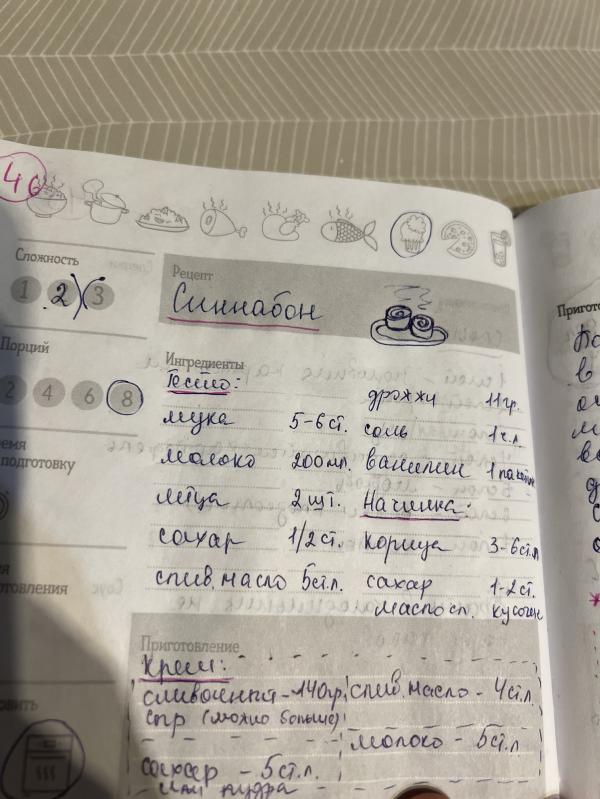 46
Сложность
1 2 3
Порций
2 4 6 8
время
подготовку
готовления
Рецепт
Синнабон
Ингредиенты
Тесто:
мука 5-6 ст.
молоко 200 мл.
яйца 2 шт.
сахар 1/2 ст.
слив. масло 5 ст.л.
дрожжи 11 гр.
соль 1 ч.л.
ванилин 1 пакетик
Начинка:
корица 3-6 ст.л
сахар 1-2 ст.
масло сл. кусочек
Приготовление
Крем:
сливочный - 140 гр.
сыр (можно больше)
сахар - 5 ст.л.
или пудра
слив. масло - 4 ст.л.
молоко - 5 ст.л.
Пригото